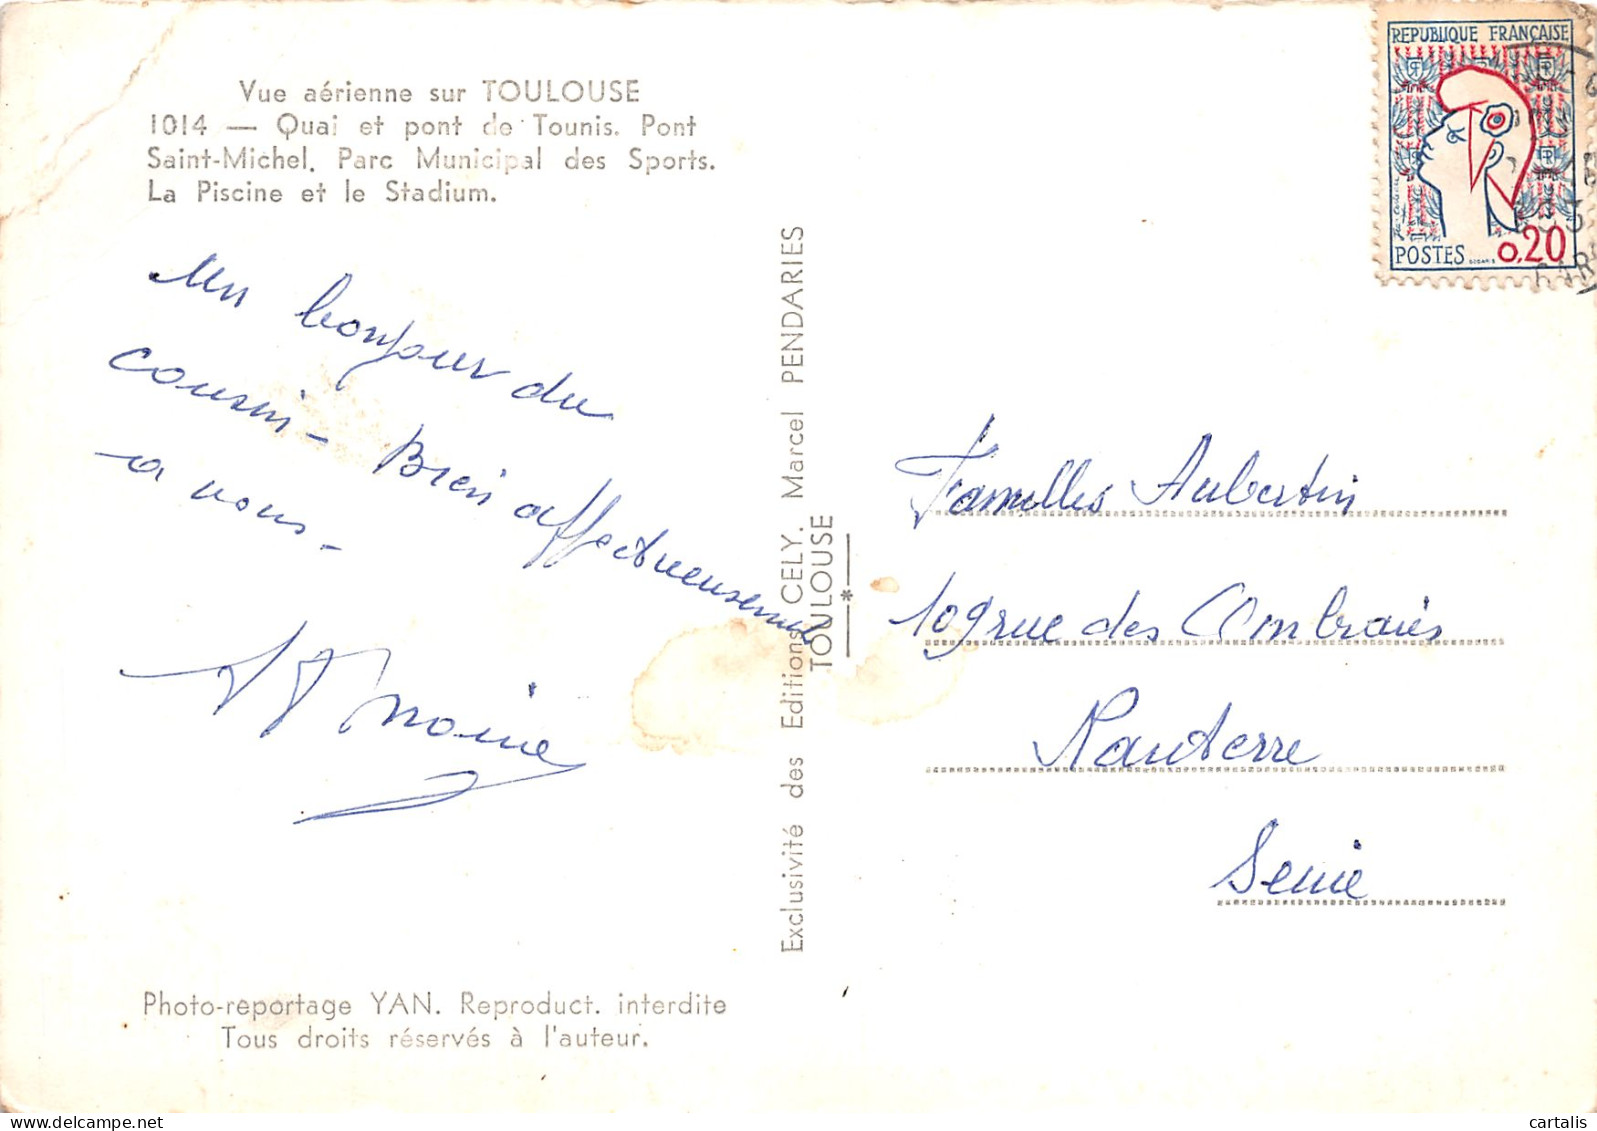 Vue aérienne sur TOULOUSE
1014 — Quai et pont de Tounis. Pont
Saint-Michel. Parc Municipal des Sports.
La Piscine et le Stadium.
Un bonjour du
cousin - Bien affectueusement
a vous -
Photo-reportage YAN. Reproduct. interdite
Tous droits réservés à l'auteur.
Exclusivité des Editions CELY. Marcel PENDARIES
TOULOUSE
*
REPUBLIQUE FRANÇAISE
POSTES 0,20
Familles Aubertin
109 rue des Ombraies
Nanterre
Seine
cartalis